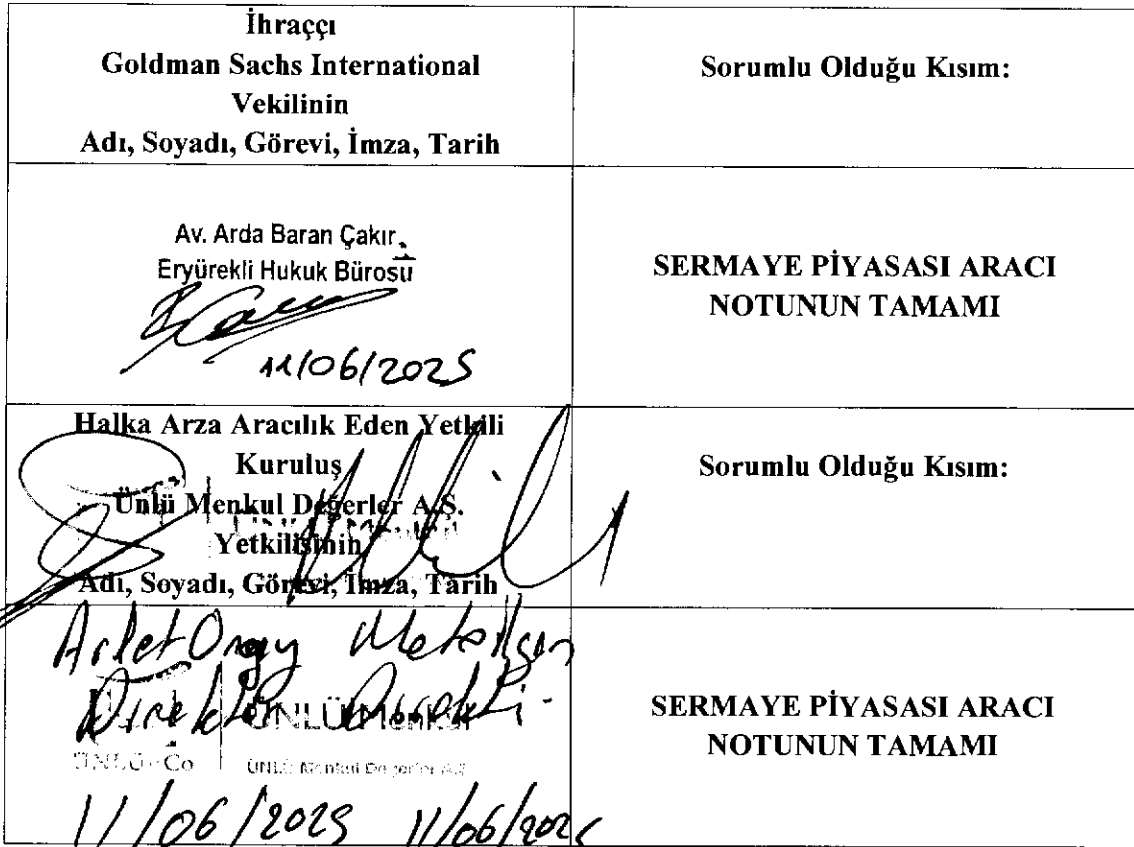 İhraççı
Goldman Sachs International
Vekilinin
Adı, Soyadı, Görevi, İmza, Tarih
Sorumlu Olduğu Kısım:
Av. Arda Baran Çakır
Eryürekli Hukuk Bürosu
11/06/2025
SERMAYE PİYASASI ARACI
NOTUNUN TAMAMI
Halka Arza Aracılık Eden Yetkili
Kuruluş
Ünlü Menkul Değerler A.Ş.
Yetkilisinin
Adı, Soyadı, Görevi, İmza, Tarih
Sorumlu Olduğu Kısım:
Arlet
Direktör
ÜNLÜ Menkul
ÜNLÜ & Co
ÜNLÜ Menkul Değerler A.Ş.
11/06/2025 11/06/202
SERMAYE PİYASASI ARACI
NOTUNUN TAMAMI